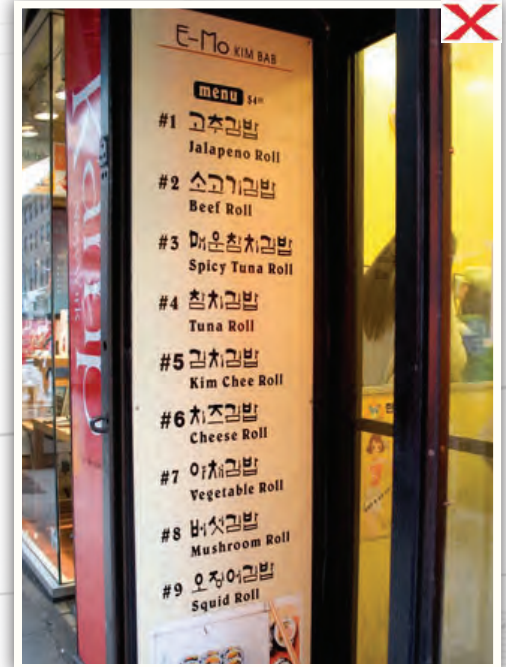 E-Mo KIM BAB
menu
#1 고추김밥
Jalapeno Roll
#2 소고기김밥
Beef Roll
#3 매운참치김밥
Spicy Tuna Roll
#4 참치김밥
Tuna Roll
#5 김치김밥
Kim Chee Roll
#6 치즈김밥
Cheese Roll
#7 야채김밥
Vegetable Roll
#8 버섯김밥
Mushroom Roll
#9 오징어김밥
Squid Roll